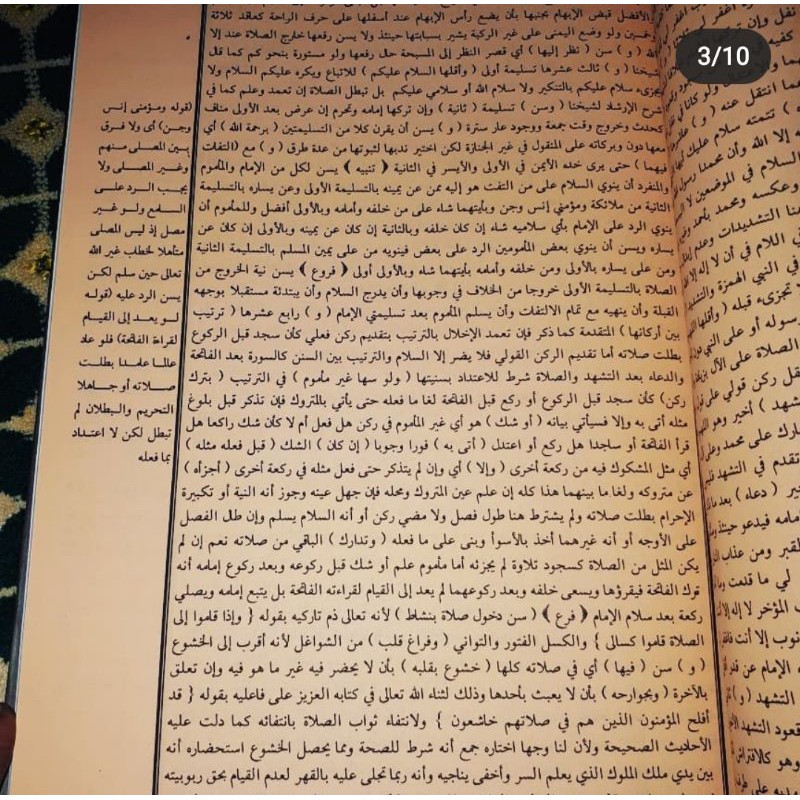 3/10
الأفضل قبض الإبهام بجنبها بأن يضع رأس الإبهام عند أسفلها على حرف الراحة كعاقد ثلاثة
وخمسين ولو وضع اليمنى على غير الركبة يشير بسبابتها حينئذ ولا يسن رفعها خارج الصلاة عند إلا
الله ( و ) سن ( نظر إليها ) أي قصر النظر إلى المسبحة حال رفعها ولو مستورة بنحو كم كما قال
شيخنا ( و ) ثالث عشرها تسليمة أولى ( وأقلها السلام عليكم ) للاتباع ويكره عليكم السلام ولا
يجزىء سلام عليكم بالتنكير ولا سلام الله أو سلامي عليكم بل تبطل الصلاة إن تعمد وعلم كما في
شرح الإرشاد لشيخنا ( وسن ) تسليمة ( ثانية ) وإن تركها إمامه وتحرم إن عرض بعد الأولى مناف
كحدث وخروج وقت جمعة ووجود عار سترة ( و ) يسن أن يقرن كلا من التسليمتين ( برحمة الله ) أي
معها دون وبركاته على المنقول في غير الجنازة لكن اختير ندبها لثبوتها من عدة طرق ( و ) مع ( التفات
فيهما ) حتى يرى خده الأيمن في الأولى والأيسر في الثانية ﴿ تنبيه ﴾ يسن لكل من الإمام والمأموم
والمنفرد أن ينوي السلام على من التفت هو إليه ممن عن يمينه بالتسليمة الأولى وعن يساره بالتسليمة
الثانية من ملائكة ومؤمني إنس وجن وبأيتهما شاء على من خلفه وأمامه وبالأولى أفضل وللمأموم أن
ينوي الرد على الإمام بأي سلاميه شاء إن كان خلفه وبالثانية إن كان عن يمينه وبالأولى إن كان عن
يساره ويسن أن ينوي بعض المأمومين الرد على بعض فينويه من على يمين المسلم بالتسليمة الثانية
ومن على يساره بالأولى ومن خلفه وأمامه بأيتهما شاء وبالأولى أولى ﴿ فروع ﴾ يسن نية الخروج من
الصلاة بالتسليمة الأولى خروجا من الخلاف في وجوبها وأن يدرج السلام وأن يبتدئه مستقبلا بوجهه
القبلة وأن ينهيه مع تمام الالتفات وأن يسلم المأموم بعد تسليمتي الإمام ( و ) رابع عشرها ( ترتيب
بين أركانها ) المتقدمة كما ذكر فإن تعمد الإخلال بالترتيب بتقديم ركن فعلي كأن سجد قبل الركوع
بطلت صلاته أما تقديم الركن القولي فلا يضر إلا السلام والترتيب بين السنن كالسورة بعد الفاتحة
والدعاء بعد التشهد والصلاة شرط للاعتداد بسنيتها ( ولو سها غير مأموم ) في الترتيب ( بترك
ركن ) كأن سجد قبل الركوع أو ركع قبل الفاتحة لغا ما فعله حتى يأتي بالمتروك فإن تذكر قبل بلوغ
مثله أتى به وإلا فسيأتي بيانه ( أو شك ) هو أي غير المأموم في ركن هل فعل أم لا كأن شك راكعا هل
قرأ الفاتحة أو ساجدا هل ركع أو اعتدل ( أتى به ) فورا وجوبا ( إن كان ) الشك ( قبل فعله مثله )
أي مثل المشكوك فيه من ركعة أخرى ( وإلا ) أي وإن لم يتذكر حتى فعل مثله في ركعة أخرى ( أجزأه )
عن متروكه ولغا ما بينهما هذا كله إن علم عين المتروك ومحله فإن جهل عينه وجوز أنه النية أو تكبيرة
الإحرام بطلت صلاته ولم يشترط هنا طول فصل ولا مضي ركن أو أنه السلام يسلم وإن طال الفصل
على الأوجه أو أنه غيرهما أخذ بالأسوأ وبنى على ما فعله ( وتدارك ) الباقي من صلاته نعم إن لم
يكن المثل من الصلاة كسجود تلاوة لم يجزئه أما مأموم علم أو شك قبل ركوعه وبعد ركوع إمامه أنه
ترك الفاتحة فيقرؤها ويسعى خلفه وبعد ركوعهما لم يعد إلى القيام لقراءته الفاتحة بل يتبع إمامه ويصلي
ركعة بعد سلام الإمام ﴿ فرع ﴾ ( سن دخول صلاة بنشاط ) لأنه تعالى ذم تاركيه بقوله { وإذا قاموا إلى
الصلاة قاموا كسالى } والكسل الفتور والتواني ( وفراغ قلب ) من الشواغل لأنه أقرب إلى الخشوع
( و ) سن ( فيها ) أي في صلاته كلها ( خشوع بقلبه ) بأن لا يحضر فيه غير ما هو فيه وإن تعلق
بالآخرة ( وبجوارحه ) بأن لا يعبث بأحدها وذلك لثناء الله تعالى في كتابه العزيز على فاعليه بقوله { قد
أفلح المؤمنون الذين هم في صلاتهم خاشعون } ولانتفاء ثواب الصلاة بانتفائه كما دلت عليه
الأحاديث الصحيحة ولأن لنا وجها اختاره جمع أنه شرط للصحة ومما يحصل الخشوع استحضاره أنه
بين يدي ملك الملوك الذي يعلم السر وأخفى يناجيه وأنه ربما تجلى عليه بالقهر لعدم القيام بحق ربوبيته
(قوله ومؤمني إنس
وجن) أى ولا فرق
بين المصلى منهم
وغير المصلى ولا
يجب الرد على
السامع ولو غير
مصل إذ ليس المصلى
متأهلا لخطاب غير الله
تعالى حين سلم لكن
يسن الرد عليه (قوله
لو يعد إلى القيام
لقراءة الفاتحة) فلو عاد
عالما عامدا بطلت
صلاته أو جاهلا
التحريم والبطلان لم
تبطل لكن لا اعتداد
بما فعله